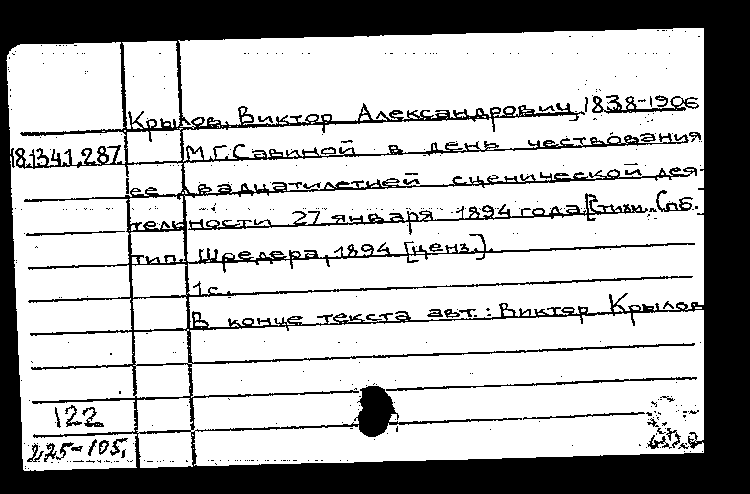 Крылов, Виктор Александрович, 1838-1906
18.134.1.287 М.Г.Савиной в день чествования
ее двадцатилетней сценической дея-
тельности 27 января 1894 года [Стихи.. Спб.
тип. Шредера, 1894 [ценз.].
1 с.
В конце текста авт.: Виктор Крылов
122
225-105.